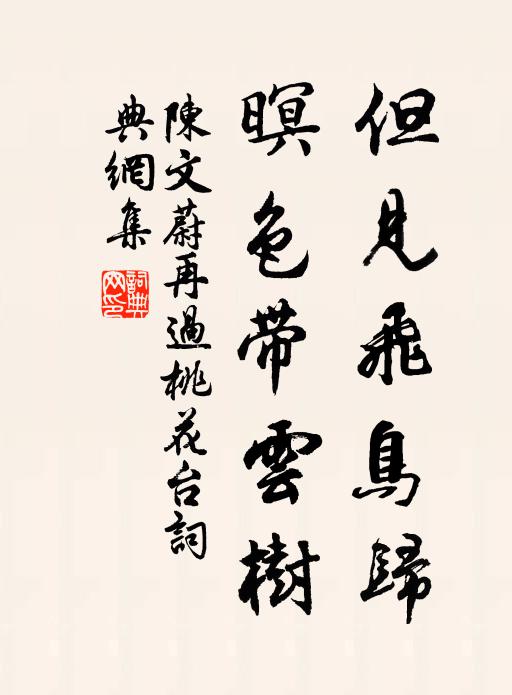 但見飛鳥歸
暝色帶雲樹
陳文蔚再過桃花台詞
典網集
詞典網印